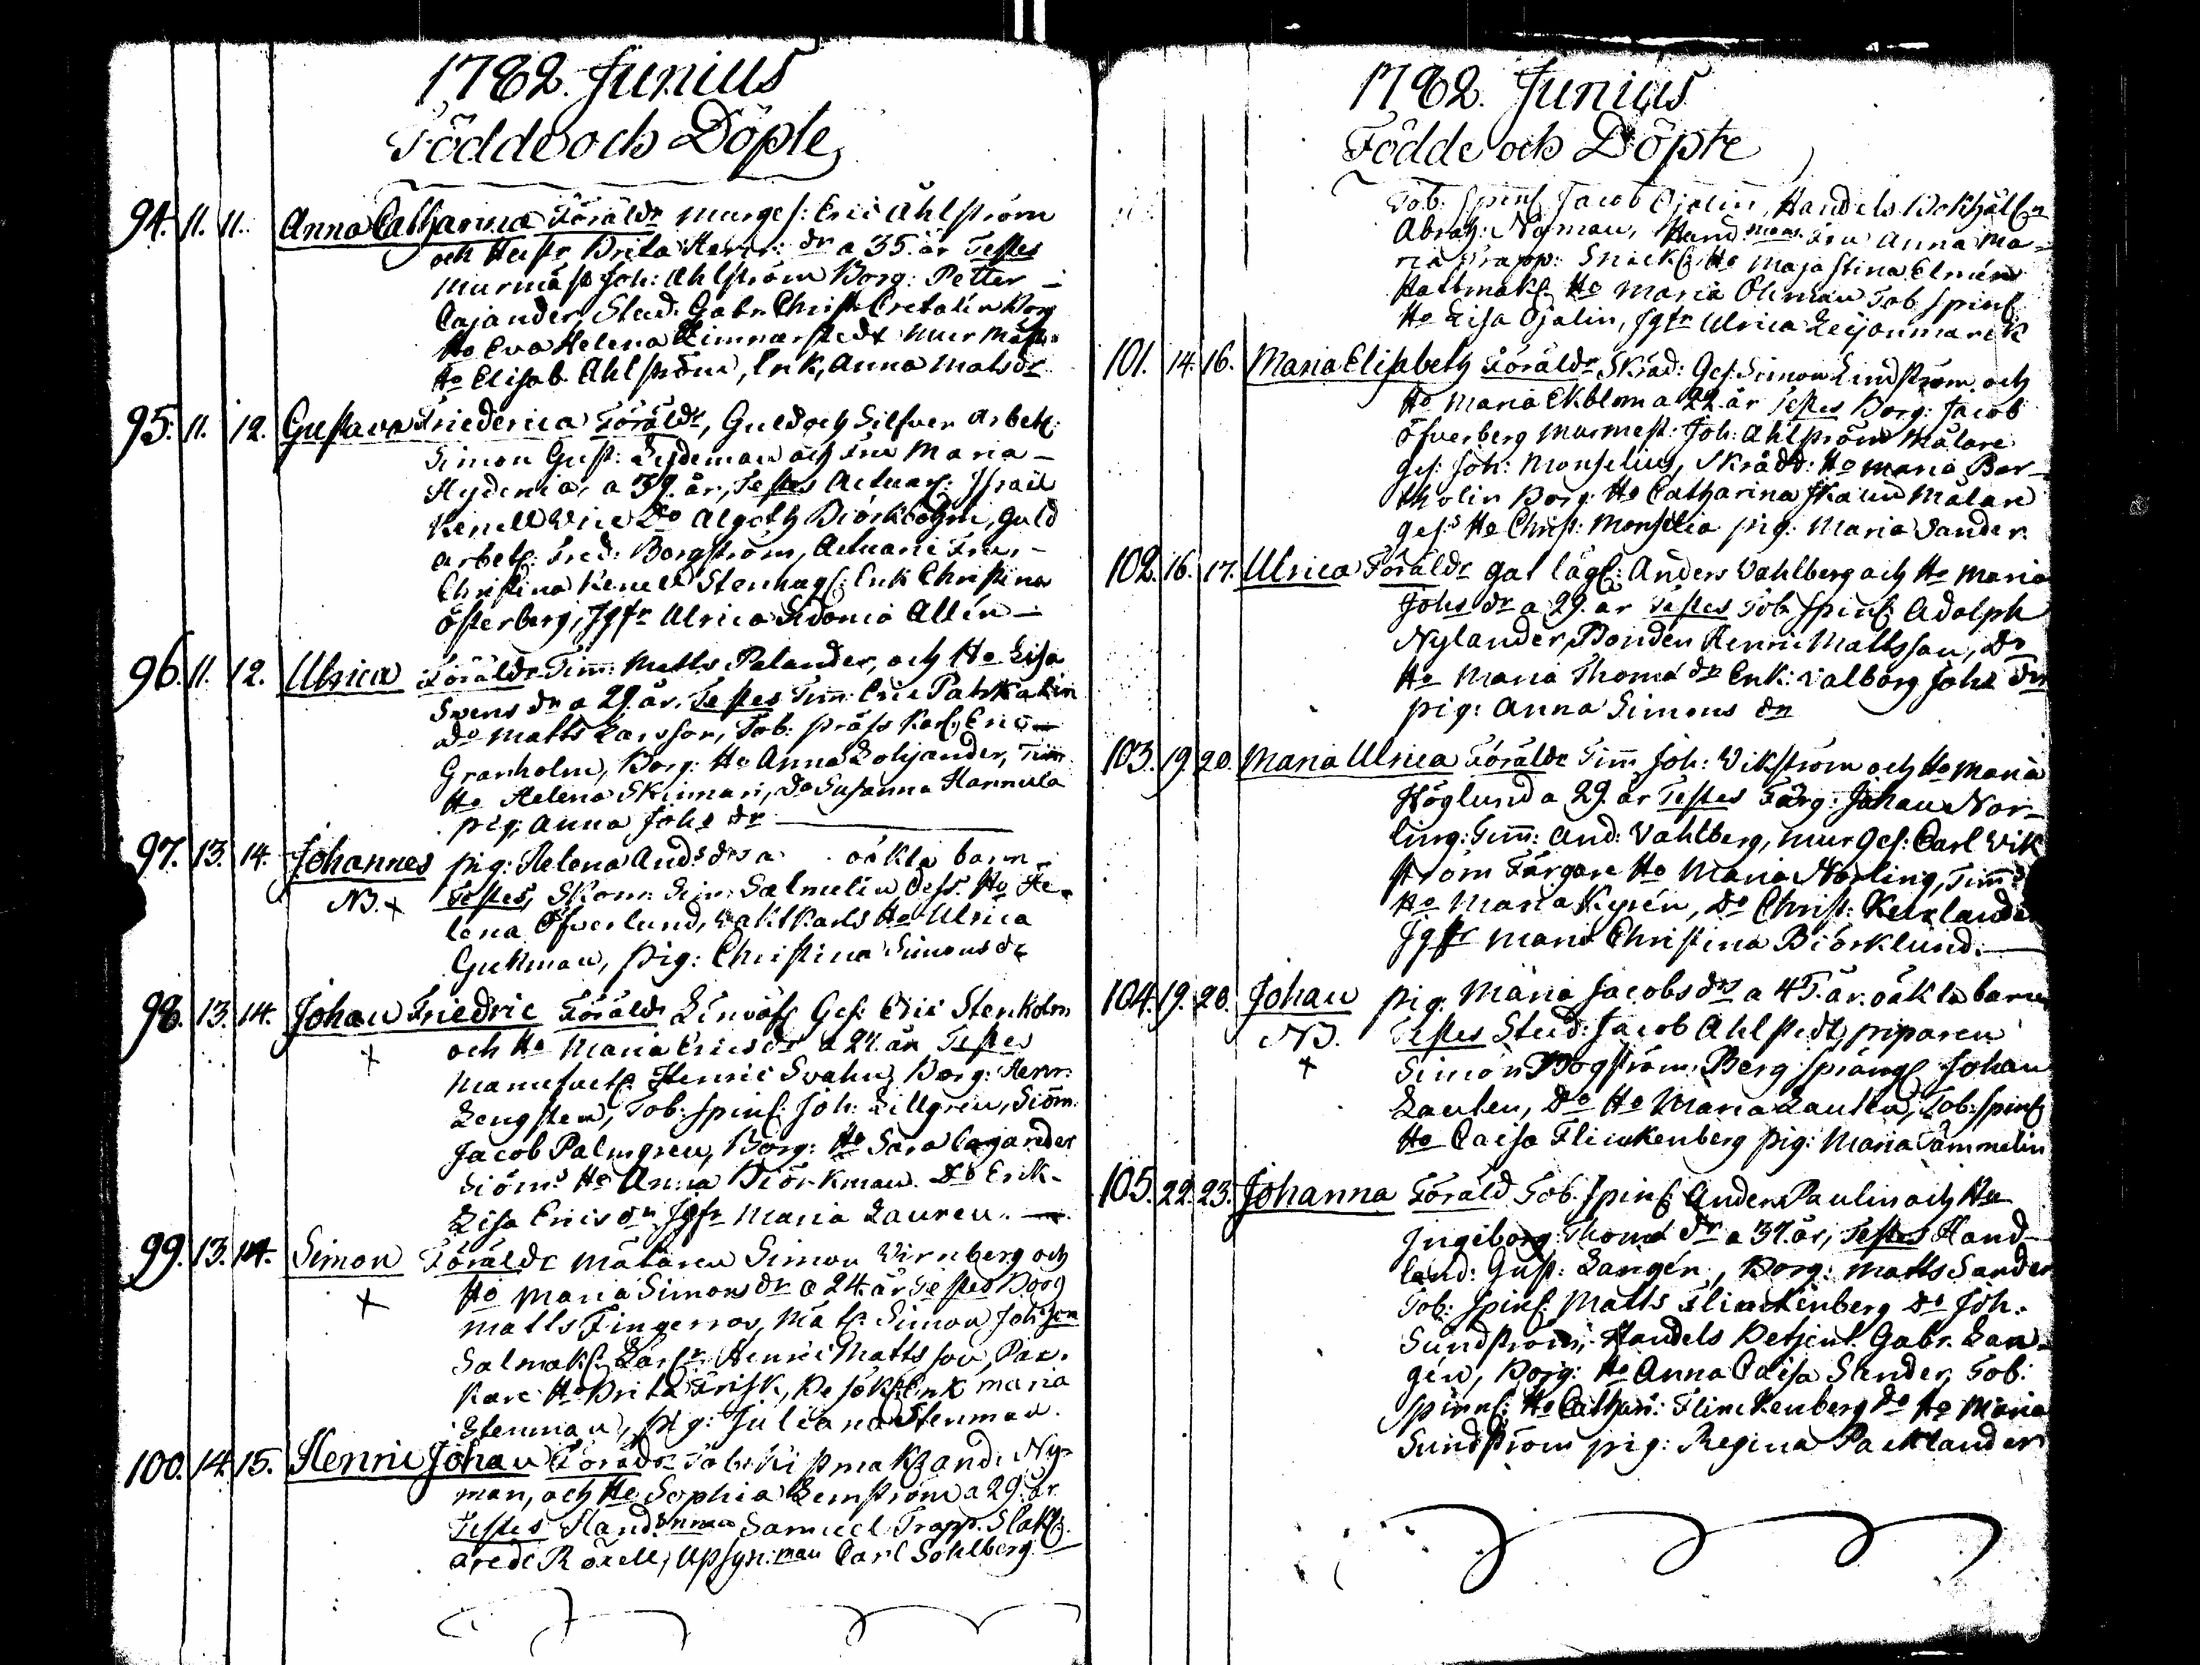 1782. Junius
Födde och Döpte
94. 11. 11. Anna Catharina Föräldr Murges: Eric Ahlström
och Hustr Brita Henr: dr a 35. år Testes
Murmäst Joh: Ahlström Borg: Petter
Cajander, Stud. Gabr. Christ. Cretalin Borg
Ho Eva Helena Timmerstedt Mur Mäst:
Ho Elisab. Ahlström, Enk, Anna Matsdr
95. 11. 12. Gustava Friederica Föräldr, Guld och Silfver Arbet:
Simon Gust: Lydeman och Fru Maria
Hydenia, a 39. år, Testes Actuar: Israel
Kenell Vice Do Algoth Biörkbohm, Guld
arbet: Fred: Borgström, Actuarie Fru,
Christina Kenell Stenhag: Enk Christina
Österberg, Jgfr Ulrica Sidonia Allén
96. 11. 12. Ulrica Föräldr Tim: Matts Palander, och Ho Lisa
Svens dr a 29. år. Testes Tim: Eric
Do Matts Larsson, Tob: präss Karl, Eric
Granholm, Borg: Ho Anna Lohjander, Tim
Ho Helena Skinnari, Do Susanna Hannula
pig: Anna Johs dr
97. 13. 14. Johannes pig: Helena Ands drs a oäkta barn
NB. + Testes, Skom: Sim: Salmelin Dess Ho He-
lena Öfverlund, Vaktkarls Ho Ulrica
Gukman, pig: Christina Simons dr
98. 13. 14. Johan Friedric Föräldr Linväf Ges: Eric Stenholm
+ och Ho Maria Erics dr a 27. år Testes
Manufact: Henric Svahn, Borg: Henr:
Lengsten, Tob: spinf: Joh: Lillgren, Siöm.
Jacob Palmgren, Borg: Ho Sara Cajander
Siöms Ho Anna Biörkman. Do Erik-
Lisa Erics dr, Jgfr Maria Lauren.
99. 13. 14. Simon Föräldr Mätaren Simon Virnberg och
+ Ho Maria Simons dr a 24. år Testes Borg
Matts Fingerroos, Mät: Simon Johsson
Salmak: Henric Mattsson, Pac-
kare Ho Brita Frisk, Besök: Enk Maria
Stenman, pig: Juliana Stenman.
100. 14. 15. Henric Johan Föräldr And: Ny-
man, och Ho Sophia Lemström a 29. år
Testes Hands man Samuel Trapp.
arede Roxell, Upsyn: man Carl Sohlberg
1782. Junius
Födde och Döpte
Tob: Spinf Jacob Ojalin, Handels Bokhåll
Abrah: Nyman, Hand mans Fru Anna Ma-
ria Trapp: Snick: Ho Maja Stina Elmén
Hattmak: Ho Maria Ohman Tob Spinf
Ho Lisa Ojalin, Jgfr Ulrica Leijonmarck
101. 14. 16. Maria Elisabeth Föräldr Skräd: Ges: Simon Lindström och
Ho Maria Ekblom a 22 år Testes Borg: Jacob
Öfverberg Murmest: Joh: Ahlström Målare
ges: Joh: Monselius, Skrädd: Ho Maria Bar-
tholin Borg: Ho Catharina Målare
ges: Ho Christ: Monselia pig: Maria Sander.
102. 16. 17. Ulrica Föräldr Anders Vahlberg och Ho Maria
Johs dr a 29. år Testes Tob Spinf: Adolph
Nylander, Bonden Henric Mattssan, Do
Ho Maria Thoms dr Enk: Valborg Johs dr
pig: Anna Simons dr
103. 19. 20. Maria Ulrica Föräldr Tim Joh: Vikström och Ho Maria
Höglund a 29. år Testes Färg: Johan Nor-
ling: Tim: And: Vahlberg, Mur Ges: Carl Vik
ström Färgare Ho Maria Norling, Tim:
Ho Maria Kyrén, Do Christ:
Jgfr Maria Christina Biörklund.
104. 19. 20. Johan pig: Maria Jacobs drs a 45. år. oäkta barn
NB. Testes Stud: Jacob Ahlstedt, piparen
+ Simon Bogström, Berg spräng: Johan
Lauten, Do Ho Maria Lauten, Tob: spinf
Ho Caisa Flinckenberg pig: Maria Tammelin
105. 22. 23. Johanna Föräld Tob. Spinf: Anders Paulin och Ho
Ingeborg Thoms dr a 37. år, Testes Hand-
land: Gust: Langén, Borg: Matts Sander
Tob: Spinf: Matts Flinckenberg Do Joh.
Sundström, Handels Betjent Gabr. Lan-
gén, Borg: Ho Anna Caisa Sander, Tob:
Spinnf: Ho Cathari: Flinckenberg Do Ho Maria
Sundström pig: Regina Packlander